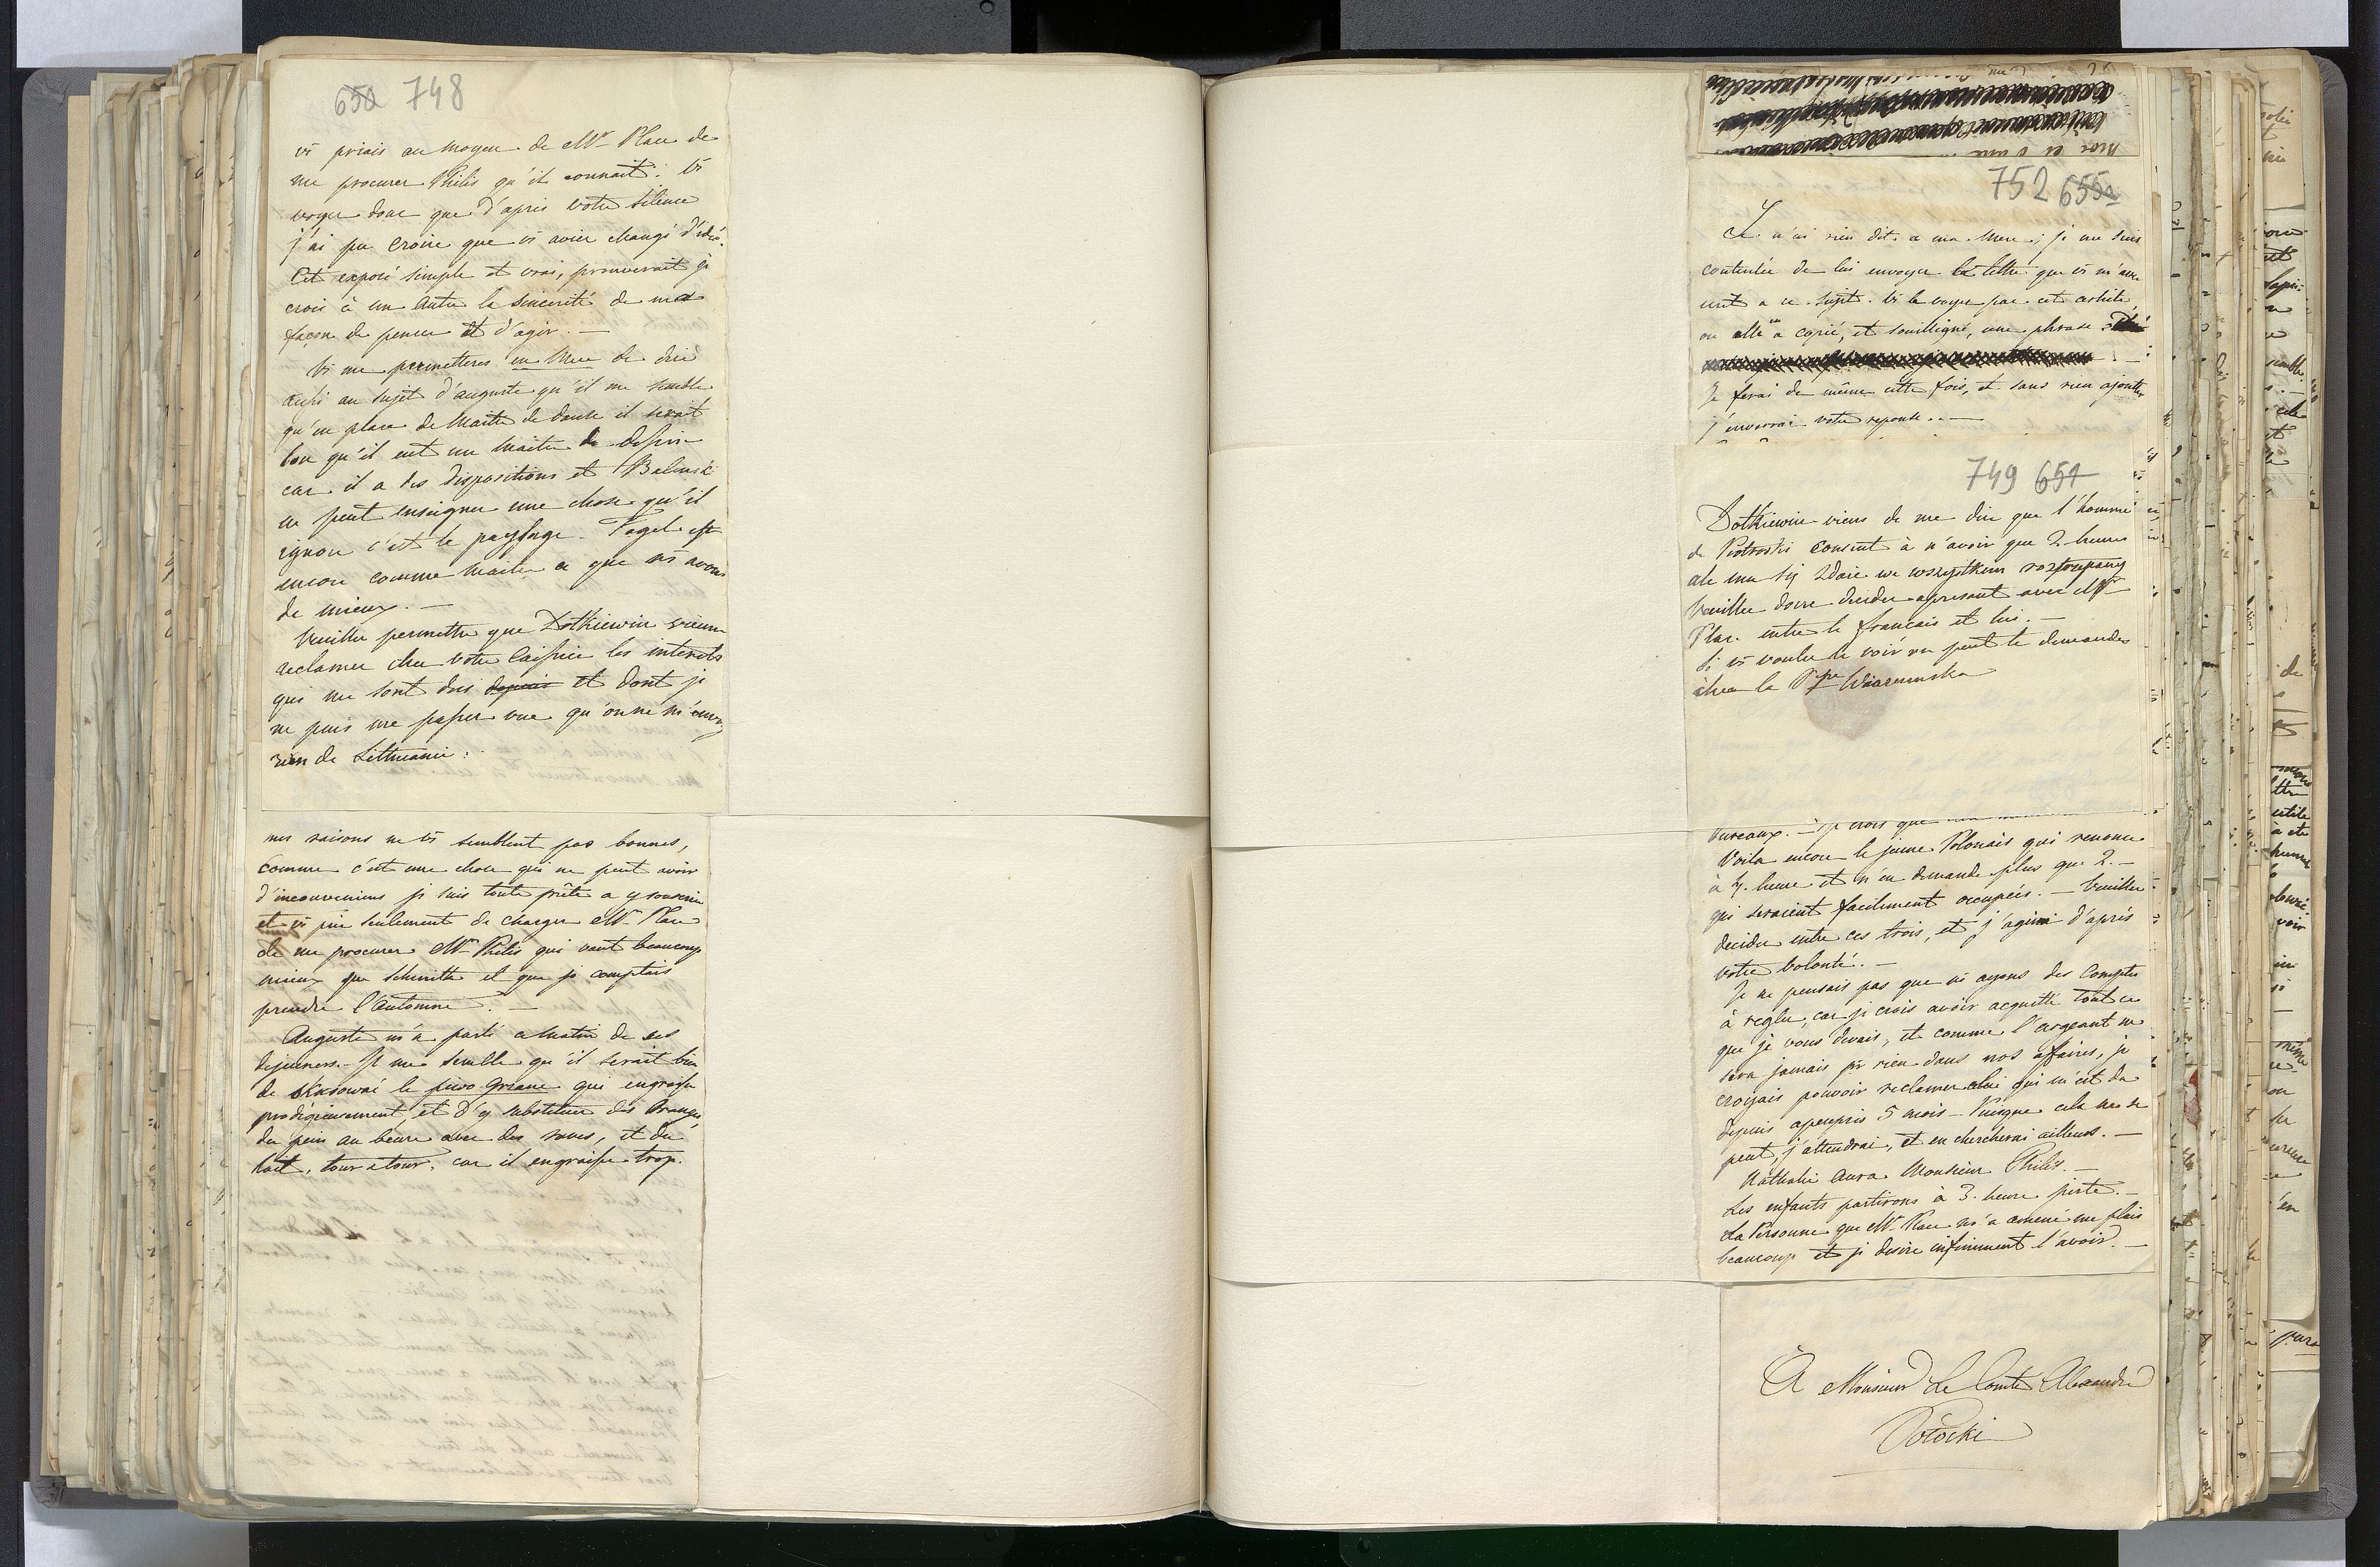 650 748
vs priais au moyen de Mr Place de
me procurer Philis qu'il connait. Vs
voyez donc que d'apris votre silence
j'ai pu croire que vs aviez changé d'idée.
Cet exposé simple et vrai, prouverait je
crois à un autre la sincerité de ma
façon de penser et d'agir. —
Vs me permetterez en Mere de dire
aussi au sujet d'auguste qu'il me semble
qu'en place de Maitre de danse il serait
bon qu'il eut un Maitre de dessin
car il a des dispositions et Balinski
ne peut enseigner une chose qu'il
ignore c'est le paysage. Vogel est
encore comme Maitre ce que ns avons
de mieux. —
Veuillez permettre que Dotkiewicz vienne
reclamer chez votre Caissier les interets
qui me sont dus depuis et dont je
ne puis me passer vue qu'on ne m'envoy
rien de Lithuanie.
mes raisons ne vs semblent pas bonnes,
comme c'est une chose qui ne peut avoir
d'inconveniens je suis toute prête a y souscrire
et vs prie seulement de charger Mr Place
de me procurer Mr Philis qui vaut beaucoup
mieux que Schmitte et que je comptais
prendre l'Automne. —
Auguste m'a parlé ce Matin de ses
dejeuners. — Il me semble qu'il serait bien
de skasować le piwo grzane qui engraisse
prodigieusement, et d'y substituer des oranges,
du pain au beure avec des raves, et du
lait, tour a tour, car il engraisse trop.
752 655a
Je n'ai rien dit a ma Mere; je me suis
contentée de lui envoyer la lettre que vs m'avez
ecrit a ce sujet. Vs le voyez par cet article
ou elle en a copié, et soulligné, une phrase
Je ferai de même cette fois, et sans rien ajouter
j'enverrai votre reponse. —
749 651
Dotkiewicz viens de me dire que l'homme
de Piotroski consent à n'avoir que 2 heures
ale mu się zdaie we wszystkiem roztrzepany
Veuillez donc decider apresent avec Mr
Place entre le francais et lui. —
Si vs voulez le voir on peut le demander
chez la Psse Wiazemska
bureaux. — Je crois que
Voila encore le jeune Polonais qui renonce
à 4. heure et n'en demande plus que 2. —
qui seraient facilement occupées. — Veuillez
decider entre ces trois, et j'agirai d'après
votre volonté. —
Je ne pensais pas que ns ayons des Comptes
à regler, car je crois avoir acquitté tout ce
que je vous devais, et comme l'argeant ne
sera jamais pr rien dans nos affaires, je
croyais pouvoir reclamer celui qui m'est du
depuis apeuprès 5 mois — Puisque cela ne se
peut, j'attendrai, et en chercherai ailleurs. —
Nathalie aura Monsieur Philis. —
Les enfants partirons à 3. heure juste. —
La Personne que Mr Place m'a amené me plais
beaucoup et je desire infiniment l'avoir. —
A Monsieur Le Comte Alexandre
Potocki